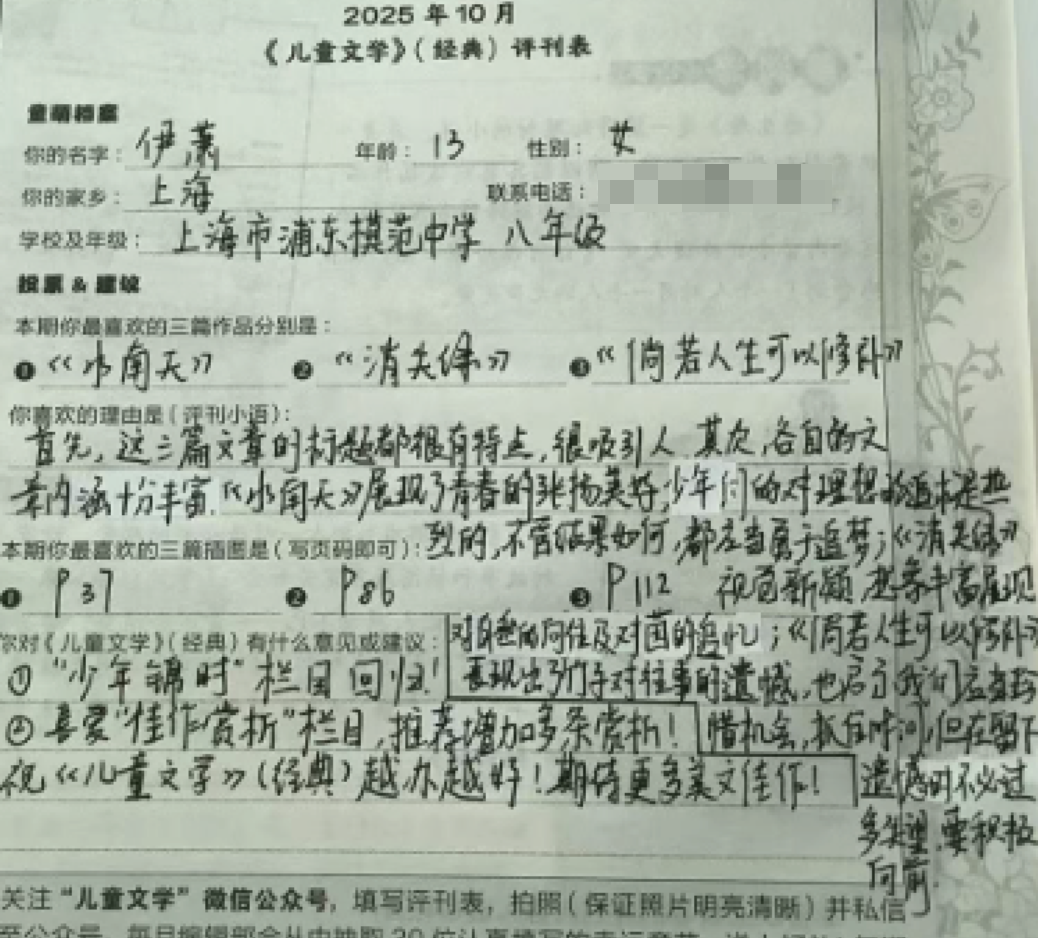 2025年10月
《儿童文学》(经典)评刊表
童萌档案
你的名字：伊萧 年龄：13 性别：女
你的家乡：上海 联系电话：
学校及年级：上海市浦东模范中学 八年级
投票 & 建议
本期你最喜欢的三篇作品分别是：
❶《水南天》 ❷《消失绿》 ❸《倘若人生可以修补》
你喜欢的理由是(评刊小语)：
首先，这三篇文章的标题都很有特点，很吸引人.其次，各自的文
章内涵十分丰富.《水南天》展现了青春的张扬美好,少年们的对理想的追求是热
烈的,不管结果如何,都应当勇于追梦；《消失绿》
视角新颖,想象丰富,展现
对自然的向往及对茵的追忆；《倘若人生可以修补》
表现出了竹子对往事的遗憾,也启示我们应当珍
惜机会,抓住时间,但在留下
遗憾时不必过
多失望,要积极
向前.
本期你最喜欢的三篇插图是(写页码即可)：
❶ P37 ❷ P86 ❸ P112
你对《儿童文学》(经典)有什么意见或建议：
①“少年锦时”栏目回归!
②喜爱“佳作赏析”栏目,推荐增加多条赏析!
祝《儿童文学》(经典)越办越好!期待更多美文佳作!
关注“儿童文学”微信公众号，填写评刊表，拍照(保证照片明亮清晰)并私信
至公众号，每月编辑部会从中抽取20位认真填写的幸运童萌